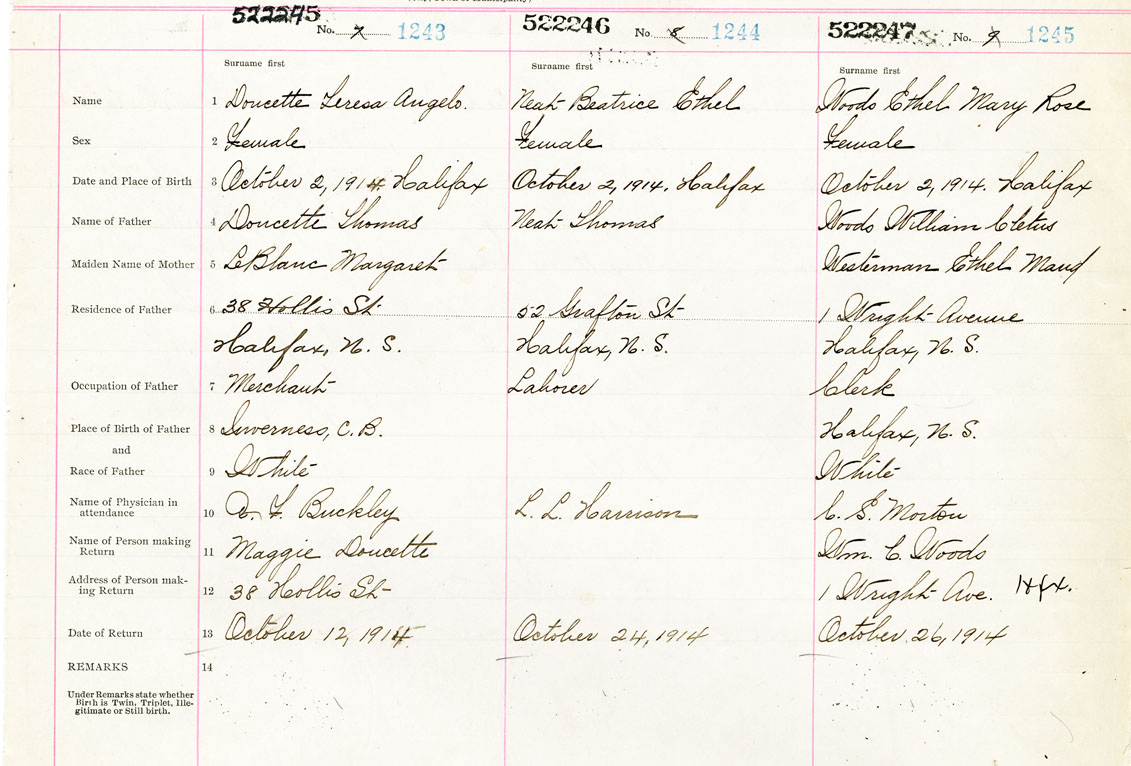 522245 522246 522247
No. 7 1243 No. 8 1244 No. 9 1245
Surname first Surname first Surname first
Name 1 Doucette Teresa Angelo. Neat Beatrice Ethel Woods Ethel Mary Rose
Sex 2 Female Female Female
Date and Place of Birth 3 October 2, 1914 Halifax October 2, 1914. Halifax October 2, 1914. Halifax
Name of Father 4 Doucette Thomas Neat Thomas Woods William Cletus
Maiden Name of Mother 5 LeBlanc Margaret Westerman Ethel Maud
Residence of Father 6 38 Hollis St 52 Grafton St 1 Wright Avenue
Halifax, N. S. Halifax, N. S. Halifax, N. S.
Occupation of Father 7 Merchant Laborer Clerk
Place of Birth of Father 8 Inverness, C. B. Halifax, N. S.
and
Race of Father 9 White White
Name of Physician in
attendance 10 Buckley L. L. Harrison C. S. Morton
Name of Person making
Return 11 Maggie Doucette Wm. C. Woods
Address of Person mak-
ing Return 12 38 Hollis St 1 Wright Ave. Hfx.
Date of Return 13 October 12, 1914 October 24, 1914 October 26, 1914
REMARKS 14
Under Remarks state whether
Birth is Twin, Triplet, Ille-
gitimate or Still birth.